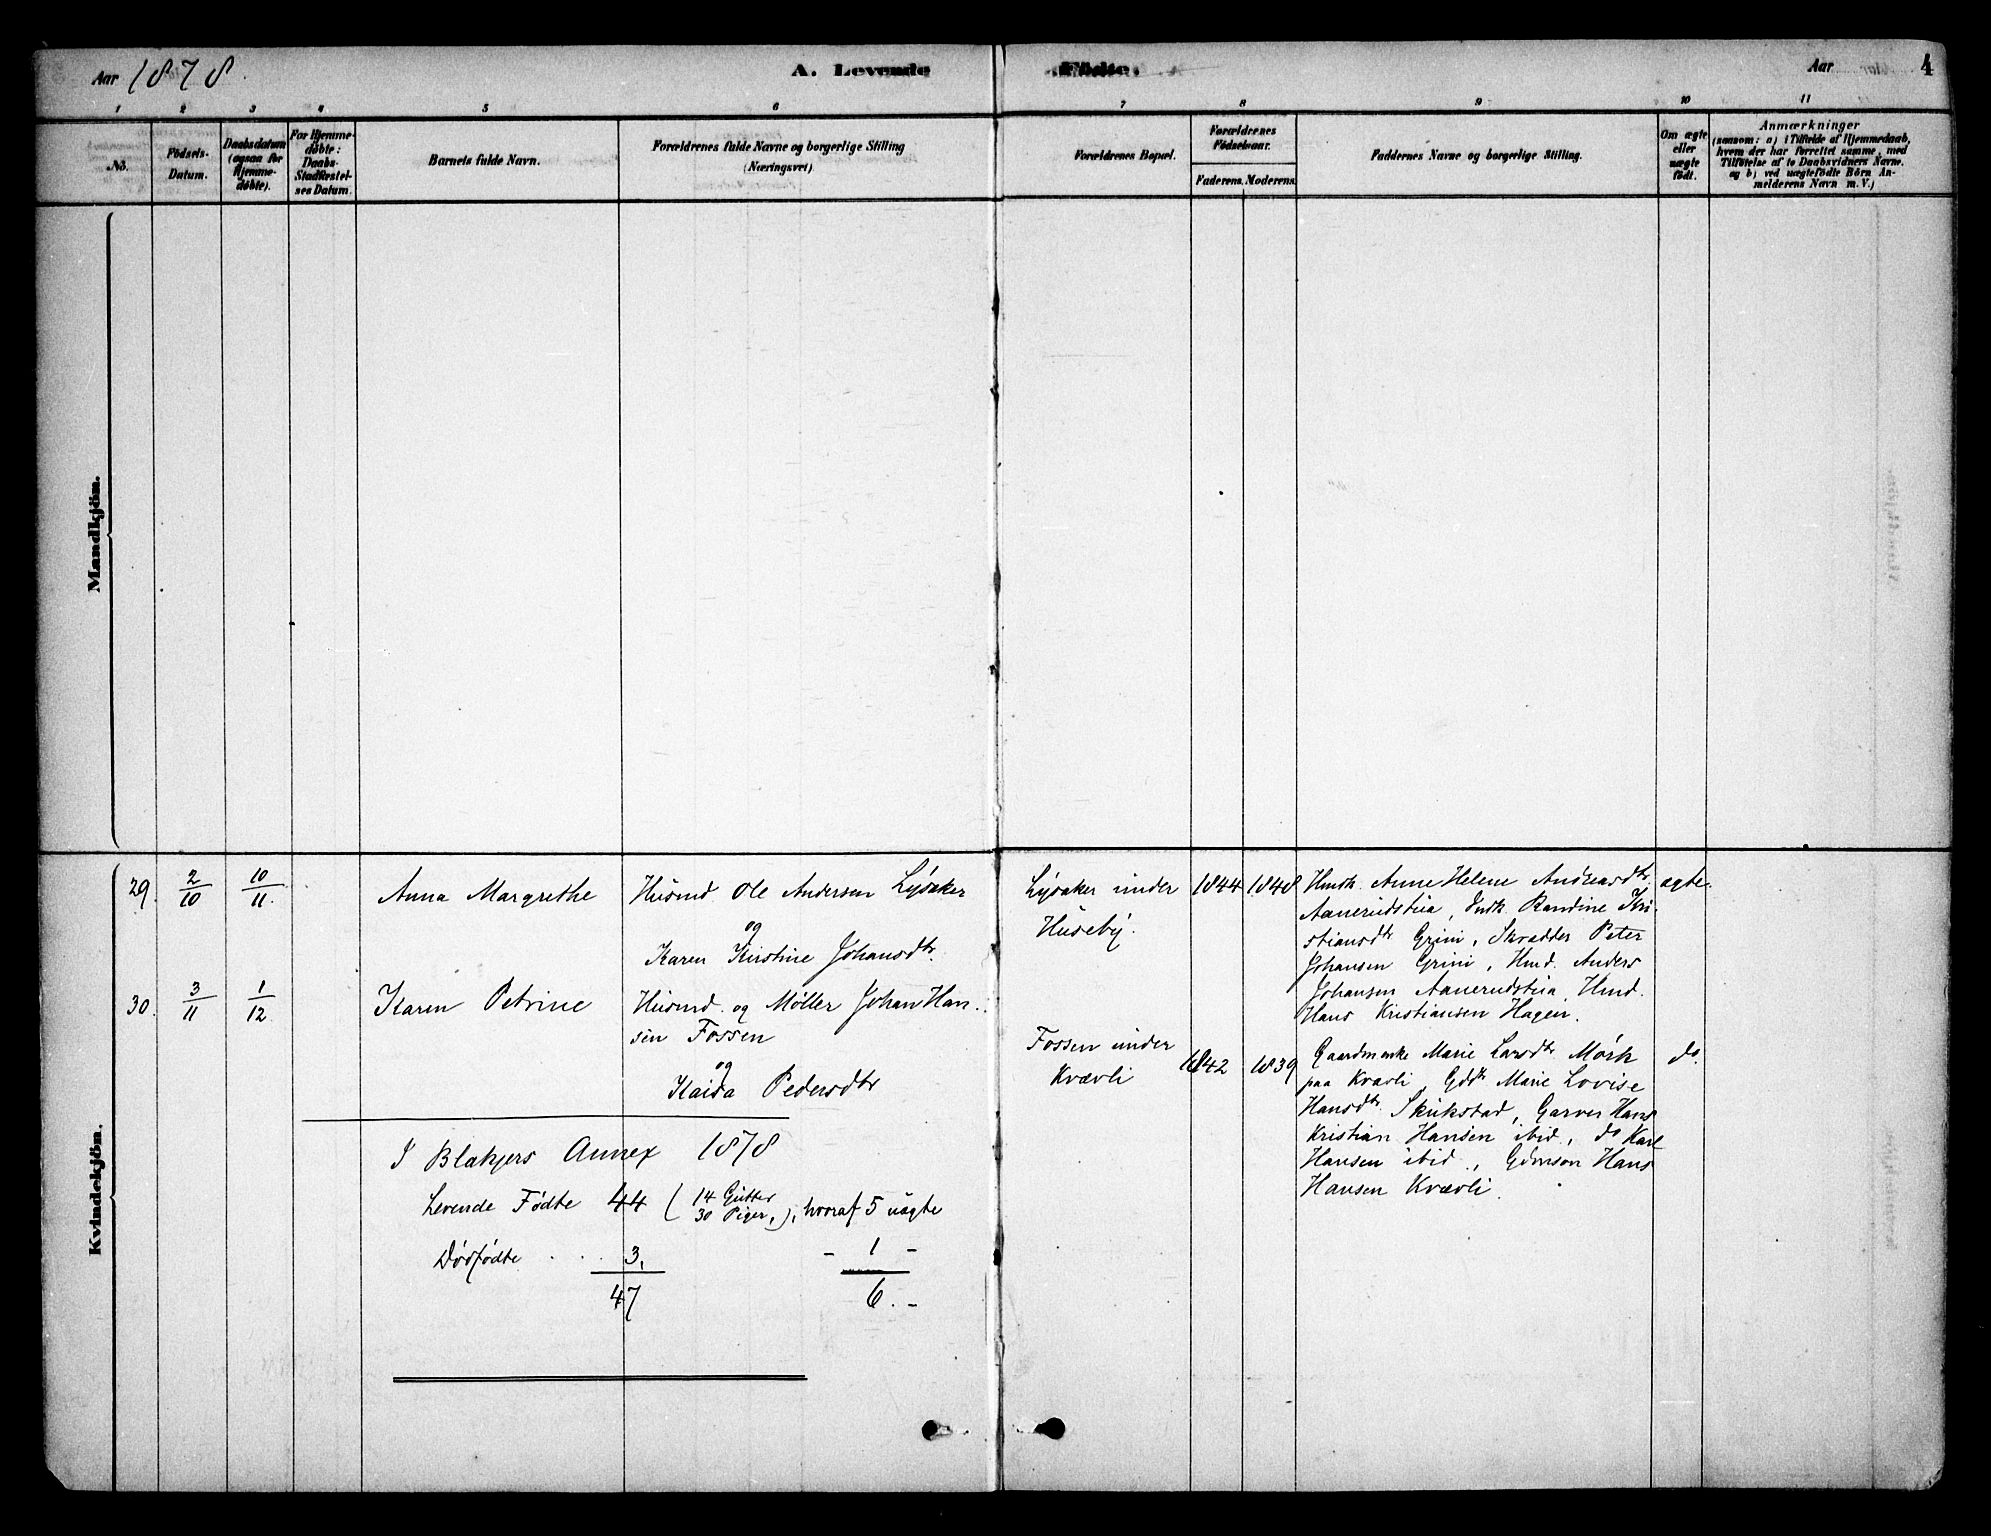 Aar 1878. A. Levende Födte. Aar 4
1 2 3 4 5 6 7 8 9 10 11
No.
Födsels-
Datum.
Daabsdatum
(ogsaa for
Hjemme-
döbte).
For Hjemme-
döbte:
Daabs-
Stadfæstel-
ses Datum.
Barnets fulde Navn.
Forældrenes fulde Navne og borgerlige Stilling
(Næringsvei)
Forældrenes Bopæl.
Forældrenes
Födselsaar.
Faderens. Moderens.
Faddernes Navne og borgerlige Stilling.
Om ægte
eller
uægte
födt.
Anmærkninger
(saasom: a) i Tilfælde af Hjemmedaab,
hvem der har forrettet samme, med
Tilföielse af to Daabsvidners Navne.
og b) ved uægtefödte Börn An-
melderens Navn m. V.)
Mandkjön.
Kvindekjön.
29. 2/10 10/11. Anna Margrethe
Husmd. Ole Andersen Lysaker
og
Karen Kirstine Johansdtr.
Lysaker under
Huseby.
1844 1848
Hmdk. Anne Helene Andreasdtr.
Aanerudstua, Indk. Randine Kri-
stiansdtr Grini, Skrædder Peter
Johansen Grini, Hmd. Anders
Johansen Aanerudstua, Hmd.
Hans Kristiansen Hagen.
ægte.
30. 3/11 1/12 Karen Petrine
Husmd. og Møller Johan Han-
sen Fossen
og
Kaisa Pedersdtr
Fossen under
Kvævli
1842 1839
Gaardmkone Marie Larsdtr Mørk
paa Kvævli, Gddtr Marie Lovise
Hansdtr. Skukstad, Garver Hans
Kristian Hansen ibid, do Karl
Hansen ibid., Gdmsøn Hans
Hansen Kvævli.
do.
I Blakjers Annex 1878
Levende Fødte 44 (14 Gutter
30 Piger,), hvoraf 5 uægte
Dødfødte . . . 3, - 1 -
47 6. -